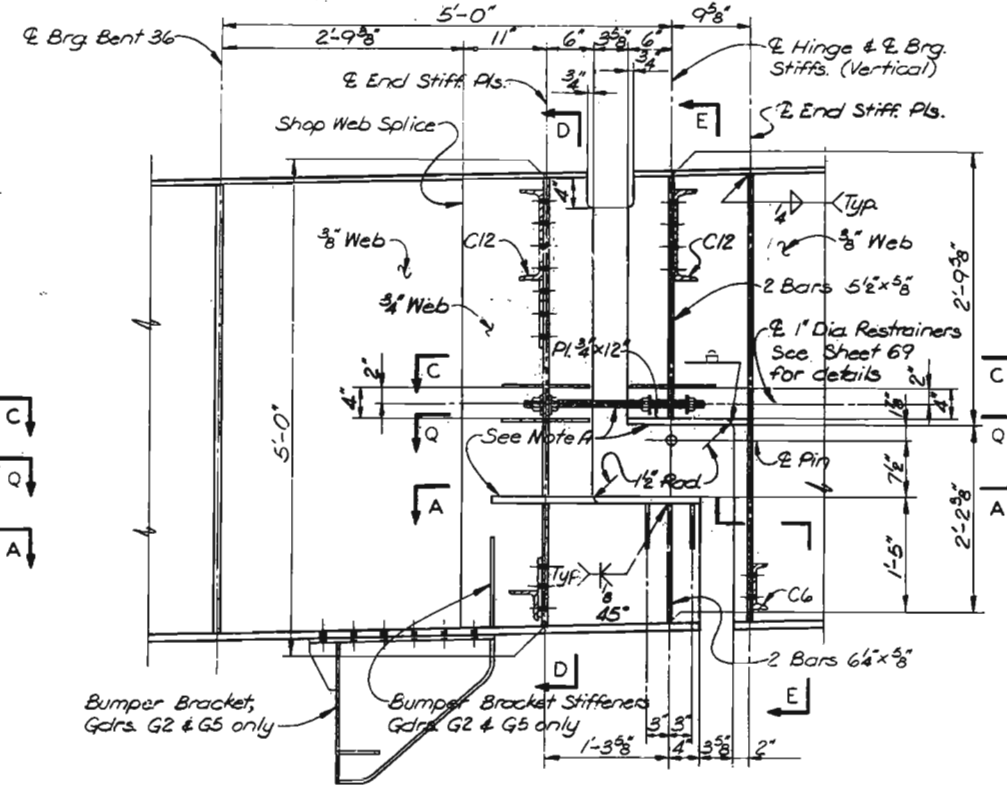 5'-0"
9 5/8"
℄ Brg. Bent 36
2'-9 3/8"
11"
6"
3 5/8"
6"
3/4"
℄ Hinge & ℄ Brg.
Stiffs. (Vertical)
℄ End Stiff. Pls.
3/4"
D
E
℄ End Stiff. Pls.
Shop Web Splice
4"
1/4
Typ.
3/8" Web
C12
C12
3/8" Web
2'-9 3/8"
3/4" Web
2 Bars 5 1/2" x 5/8"
Pl. 3/4" x 12"
℄ 1" Dia. Restrainers
See Sheet 69
for details
C
2"
4"
C
2"
4"
C
Q
5'-0"
Q
See Note A
℄ Pin
Q
1 1/2" Rad.
7 1/2"
2'-2 3/8"
A
A
A
1'-5"
Typ.
1/8
45°
C6
2 Bars 6 1/4" x 5/8"
D
E
Bumper Bracket,
Gdrs. G2 & G5 only
Bumper Bracket Stiffeners
Gdrs. G2 & G5 only
3"
3"
1'-3 5/8"
4"
3 5/8"
2"